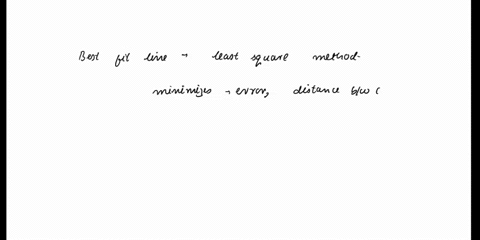 Best fit line → least square method-
minimizes → error, distance b/w (